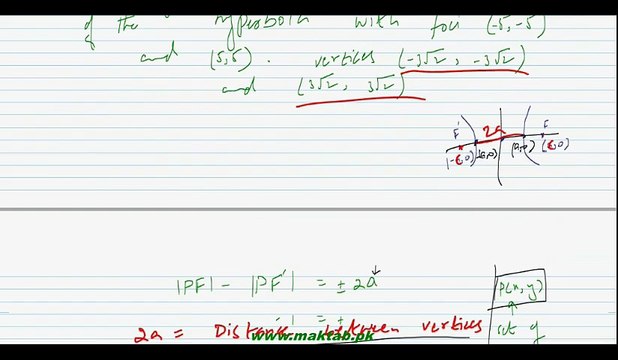 of the hyperbola with foci (-5, -5)
of
and (5,5). vertices (-3√2, -3√2)
and (3√2, 3√2)
F' 2a F
(-c,0) (a,0) (c,0)
|PF| - |PF'| = ± 2a
P(x, y)
2a = Distance between vertices
set of
www.maktab.pk